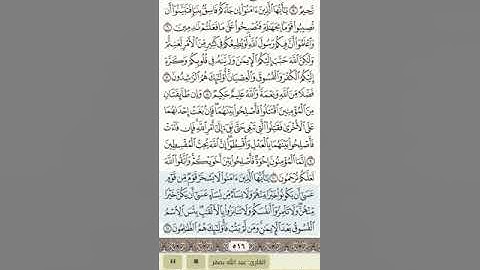 رَّحِيمٌ ۝ يَٰٓأَيُّهَا ٱلَّذِينَ ءَامَنُوٓاْ إِن جَآءَكُمۡ فَاسِقُۢ بِنَبَإٖ فَتَبَيَّنُوٓاْ أَن
تُصِيبُواْ قَوۡمَۢا بِجَهَٰلَةٖ فَتُصۡبِحُواْ عَلَىٰ مَا فَعَلۡتُمۡ نَٰدِمِينَ ۝
وَٱعۡلَمُوٓاْ أَنَّ فِيكُمۡ رَسُولَ ٱللَّهِ لَوۡ يُطِيعُكُمۡ فِي كَثِيرٖ مِّنَ ٱلۡأَمۡرِ لَعَنِتُّمۡ
وَلَٰكِنَّ ٱللَّهَ حَبَّبَ إِلَيۡكُمُ ٱلۡإِيمَٰنَ وَزَيَّنَهُۥ فِي قُلُوبِكُمۡ وَكَرَّهَ
إِلَيۡكُمُ ٱلۡكُفۡرَ وَٱلۡفُسُوقَ وَٱلۡعِصۡيَانَۚ أُوْلَٰٓئِكَ هُمُ ٱلرَّٰشِدُونَ ۝
فَضۡلٗا مِّنَ ٱللَّهِ وَنِعۡمَةٗۚ وَٱللَّهُ عَلِيمٌ حَكِيمٞ ۝ وَإِن طَآئِفَتَانِ
مِنَ ٱلۡمُؤۡمِنِينَ ٱقۡتَتَلُواْ فَأَصۡلِحُواْ بَيۡنَهُمَاۖ فَإِنۢ بَغَتۡ إِحۡدَىٰهُمَا
عَلَى ٱلۡأُخۡرَىٰ فَقَٰتِلُواْ ٱلَّتِي تَبۡغِي حَتَّىٰ تَفِيٓءَ إِلَىٰٓ أَمۡرِ ٱللَّهِۚ فَإِن فَآءَتۡ
فَأَصۡلِحُواْ بَيۡنَهُمَا بِٱلۡعَدۡلِ وَأَقۡسِطُوٓاْۖ إِنَّ ٱللَّهَ يُحِبُّ ٱلۡمُقۡسِطِينَ
۝ إِنَّمَا ٱلۡمُؤۡمِنُونَ إِخۡوَةٞ فَأَصۡلِحُواْ بَيۡنَ أَخَوَيۡكُمۡۚ وَٱتَّقُواْ ٱللَّهَ
لَعَلَّكُمۡ تُرۡحَمُونَ ۝ يَٰٓأَيُّهَا ٱلَّذِينَ ءَامَنُواْ لَا يَسۡخَرۡ قَوۡمٞ مِّن قَوۡمٍ
عَسَىٰٓ أَن يَكُونُواْ خَيۡرٗا مِّنۡهُمۡ وَلَا نِسَآءٞ مِّن نِّسَآءٍ عَسَىٰٓ أَن يَكُنَّ خَيۡرٗا
مِّنۡهُنَّۖ وَلَا تَلۡمِزُوٓاْ أَنفُسَكُمۡ وَلَا تَنَابَزُواْ بِٱلۡأَلۡقَٰبِۖ بِئۡسَ ٱلِٱسۡمُ
ٱلۡفُسُوقُ بَعۡدَ ٱلۡإِيمَٰنِۚ وَمَن لَّمۡ يَتُبۡ فَأُوْلَٰٓئِكَ هُمُ ٱلظَّٰلِمُونَ ۝
٥١٦
القارئ: عبد الله بصفر